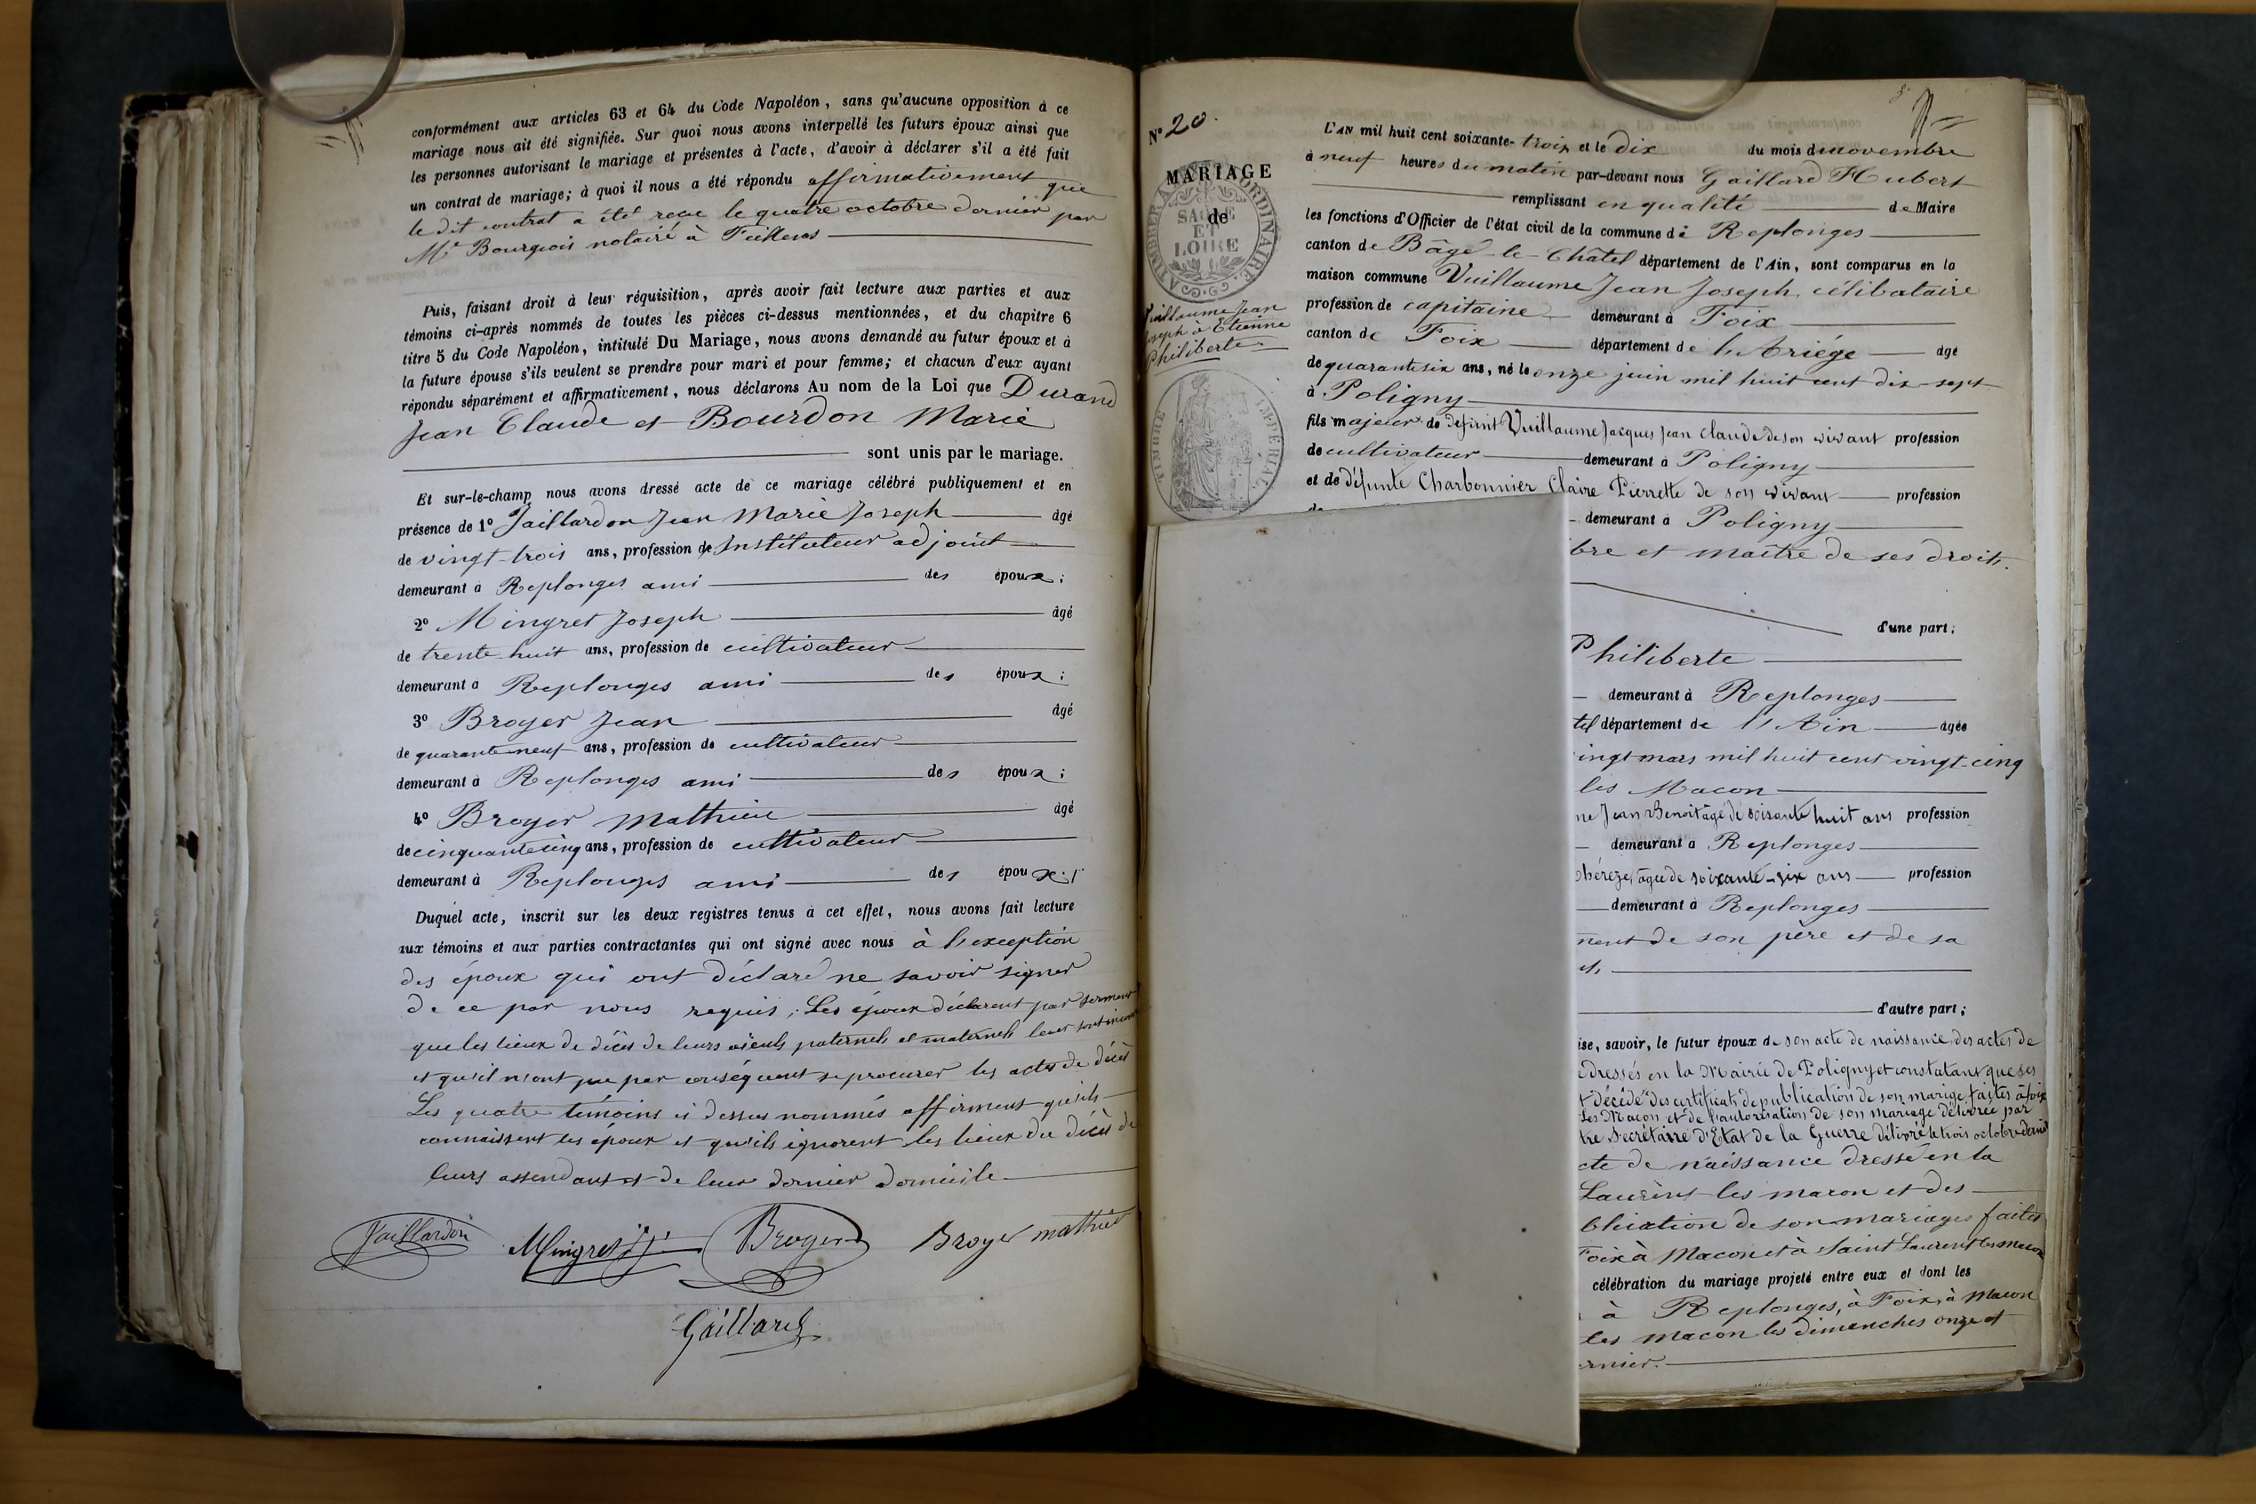 conformément aux articles 63 et 64 du Code Napoléon, sans qu'aucune opposition à ce
mariage nous ait été signifiée. Sur quoi nous avons interpellé les futurs époux ainsi que
les personnes autorisant le mariage et présentes à l'acte, d'avoir à déclarer s'il a été fait
un contrat de mariage; à quoi il nous a été répondu affirmativement que
le dit contrat a été reçu le quatre octobre dernier par
Me Bourgeois notaire à Feillens
Puis, faisant droit à leur réquisition, après avoir fait lecture aux parties et aux
témoins ci-après nommés de toutes les pièces ci-dessus mentionnées, et du chapitre 6
titre 5 du Code Napoléon, intitulé Du Mariage, nous avons demandé au futur époux et à
la future épouse s'ils veulent se prendre pour mari et pour femme; et chacun d'eux ayant
répondu séparément et affirmativement, nous déclarons Au nom de la Loi que Durand
Jean Claude et Bourdon Marie
sont unis par le mariage.
Et sur-le-champ nous avons dressé acte de ce mariage célébré publiquement et en
présence de 1° Jaillardon Jean Marie Joseph âgé
de vingt-trois ans, profession de Instituteur adjoint
demeurant à Replonges ami des époux;
2° Mingret Joseph âgé
de trente huit ans, profession de cultivateur
demeurant à Replonges ami des époux;
3° Broyer Jean âgé
de quarante neuf ans, profession de cultivateur
demeurant à Replonges ami des époux;
4° Broyer Mathieu âgé
de cinquante cinq ans, profession de cultivateur
demeurant à Replonges ami des époux.
Duquel acte, inscrit sur les deux registres tenus à cet effet, nous avons fait lecture
aux témoins et aux parties contractantes qui ont signé avec nous à l'exception
des époux qui ont déclaré ne savoir signer
de ce par nous requis; Les époux déclarent par serment
que les lieux de décès de leurs aïeuls paternels et maternels leur sont
et qu'il n'ont pu par conséquent se procurer les actes de décès
Les quatre témoins ci dessus nommés affirment qu'ils
connaissent les époux et qu'ils ignorent les lieux du décès de
leurs assendants et de leur dernier domicile
Jaillardon Mingret Jh Broyer Broyer mathieu
Gaillard
N° 20.
MARIAGE
de
SAONE
ET
LOIRE
Vuillaume Jean
Joseph à Etienne
Philiberte
TIMBRE IMPERIAL
L'AN mil huit cent soixante-trois et le dix du mois de novembre
à neuf heures du matin par-devant nous Gaillard Hubert
remplissant en qualité de Maire
les fonctions d'Officier de l'état civil de la commune de Replonges
canton de Bâgé-le-Châtel département de l'Ain, sont comparus en la
maison commune Vuillaume Jean Joseph célibataire
profession de capitaine demeurant à Foix
canton de Foix département de l'Ariége âgé
de quarante six ans, né le onze juin mil huit cent dix-sept
à Poligny
fils majeur de défunt Vuillaume Jacques Jean Claude de son vivant profession
de cultivateur demeurant à Poligny
et de défunte Charbonnier Claire Pierrette de son vivant profession
demeurant à Poligny
bre et maître de ses droits.
d'une part;
Philiberte
demeurant à Replonges
tel département de l'Ain âgée
ingt mars mil huit cent vingt-cinq
lès Macon
ne Jean Benoit âgé de soixante huit ans profession
demeurant à Replonges
hérèze, âgée de soixante-six ans profession
demeurant à Replonges
ment de son père et de sa
d'autre part;
ise, savoir, le futur époux de son acte de naissance, des actes de
dressés en la Mairie de Poligny et constatant que ses
t décédé des certificats de publication de son mariage faites à foix
Les Macon et de l'autorisation de son mariage délivrée par
tre Secrétaire d'Etat de la Guerre délivré le trois octobre dernier
cte de naissance dressé en la
Laurent-les macon et des
blication de son mariages faites
Foix à Macon et à Saint Laurent les macon
célébration du mariage projeté entre eux et dont les
à Replonges, à Foix, à Macon
les macon les dimanches onze et
ernier.